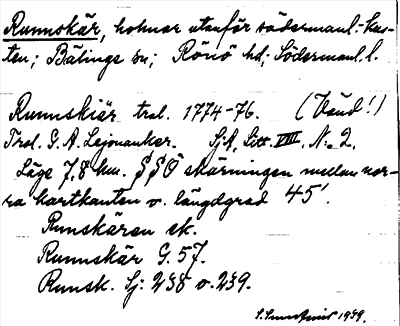 Runnskär, holmar utanför södermanl. kus-
ten; Bälinge sn; Rönö hd; Södermanl. l.
Runnskiär trol. 1774-76. (Vänd!)
Trol. G. A. Lejonanker. Sjk, Litt. VIII, N:o 2.
Läge 7,8 km. SSÖ skärningen mellan nor-
ra kartkanten o. längdgrad 45'.
Runskären ek.
Runnskär G. 57.
Runsk. Sj: 238 o. 239.
1939.